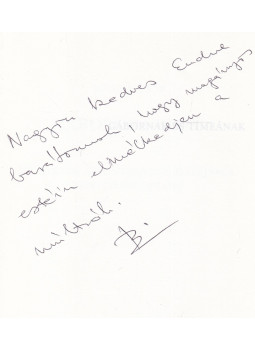 Nagyon kedves Endre
barátomnak, hogy magányos
estéin elmélkedjen a
múltról.
B.